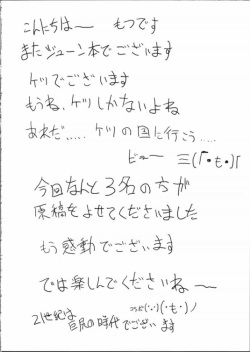 こんにちは〜 もつです
またジューン本でございます
ケツでございます
もうね、ケツしかないよね
あれだ‥‥‥ケツの国に行こう‥‥‥
ビュー 三(「・も・)「
今回なんと3名の方が
原稿をよせてくださいました
もう感動でございます
では楽しんでくださいね〜
(・も・)ノ
21世紀は
尻の時代でございます